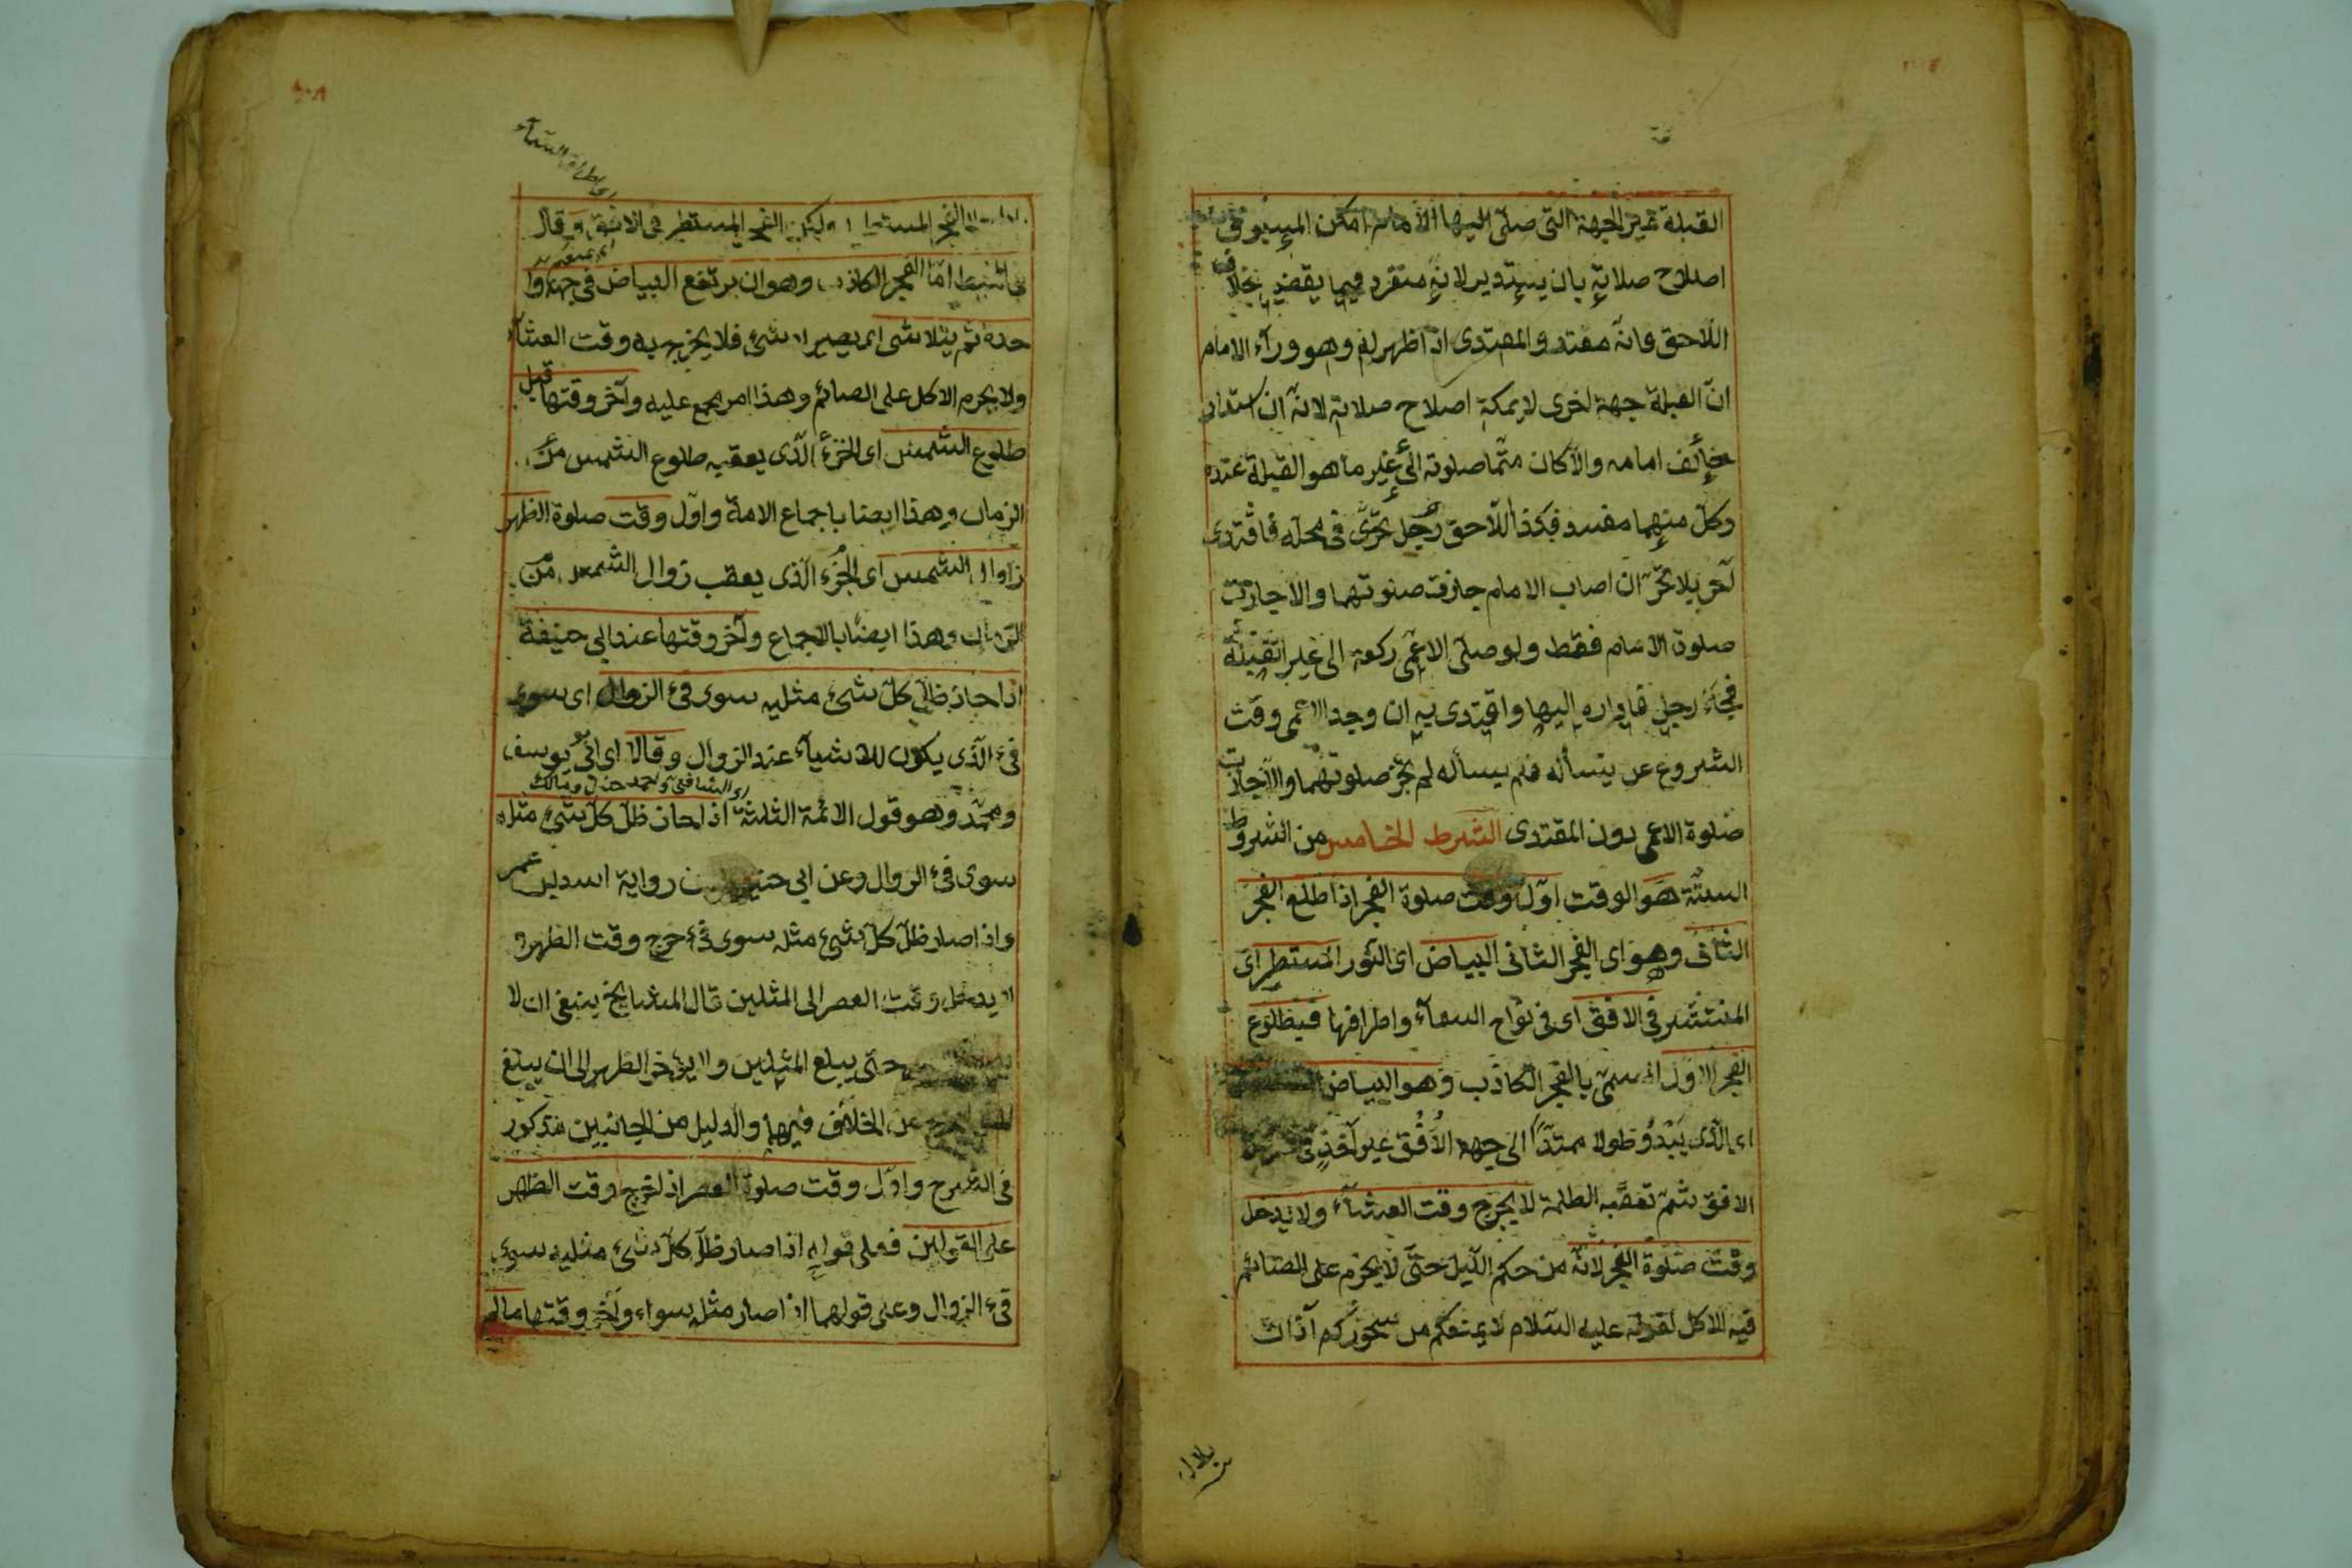 القبلة غير الجهة التى صلى اليها الامام امكن المسبوق
اصلاح صلاته بان يستدير لانه منفرد فيما يقضيه بخلاف
اللاحق وانه مقتد والمقتدى اذا ظهر له وهو وراء الامام
ان القبلة جهة اخرى لا يمكنه اصلاح صلاته لانه ان استدار
خالف امامه والا كان متما صلوته الى غير ما هو القبلة عنده
وكل منهما مفسد فكذا اللاحق رجل تحرى فى محله فاقتدى
آخر بلا تحر ان اصاب الامام جازت صلوتهما والا جازت
صلوة الامام فقط ولو صلى الاعمى ركعة الى غير القبلة
فجاء رجل فاداره اليها واقتدى به ان وجد الاعمى وقت
الشروع من يسأله فلم يسأله لم تجز صلوتهما والا جازت
صلوة الاعمى دون المقتدى الشرط الخامس من الشروط
الستة هو الوقت اول وقت صلوة الفجر اذا طلع الفجر
الثانى وهو اى الفجر الثانى البياض اى النور المستطير اى
المنتشر فى الافق اى فى نواح السماء واطرافها فبطلوع
الفجر الاول المسمى بالفجر الكاذب وهو البياض
اى الذى يبدؤ طولا ممتدا الى جهة الافق غير آخذ فى
الافق ثم تعقبه الظلمة لا يخرج وقت العشاء ولا يدخل
وقت صلوة الفجر لانه من حكم الليل حتى لا يحرم على الصائم
فيه الاكل لقوله عليه السلام لا يمنعكم من سحوركم اذان
بلال
الفجر ولكن الفجر المستطير فى الافق وقال
اما الفجر الكاذب وهو ان يرتفع البياض فى جهة وا
حدة ثم يتلاشى اى يصير لا شئ فلا يخرج به وقت العشاء
ولا يحرم الاكل على الصائم وهذا امر مجمع عليه وآخر وقتها قبل
طلوع الشمس اى الجزء الذى يعقبه طلوع الشمس من
الزمان وهذا ايضا باجماع الامة واول وقت صلوة الظهر
زوال الشمس اى الجزء الذى يعقب زوال الشمس من
الزمان وهذا ايضا بالاجماع وآخر وقتها عند ابى حنيفة
اذا ظل كل شئ مثليه سوى فئ الزوال اى سوى
فئ الذى يكون للاشياء عند الزوال وقالا اى ابى يوسف
ومحمد وهو قول الائمة الثلثة اذا ظل كل شئ مثله
سوى فئ الزوال وعن ابى رواية اسد بن عمر
واذا صار ظل كل شئ مثله سوى فئ خرج وقت الظهر
لا يدخل وقت العصر الى المثلين قال المشايخ ينبغى ان لا
حتى يبلغ المثلين ولا يؤخر الظهر الى ان يبلغ
عن الخلاف فيهما والدليل من الجانبين مذكور
فى الشرح واول وقت صلوة العصر اذا خرج وقت الظهر
على القولين فعلى قوله اذا صار ظل كل شئ مثليه سوى
فئ الزوال وعلى قولهما اذا صار مثله سواء وآخر وقتها ما لم